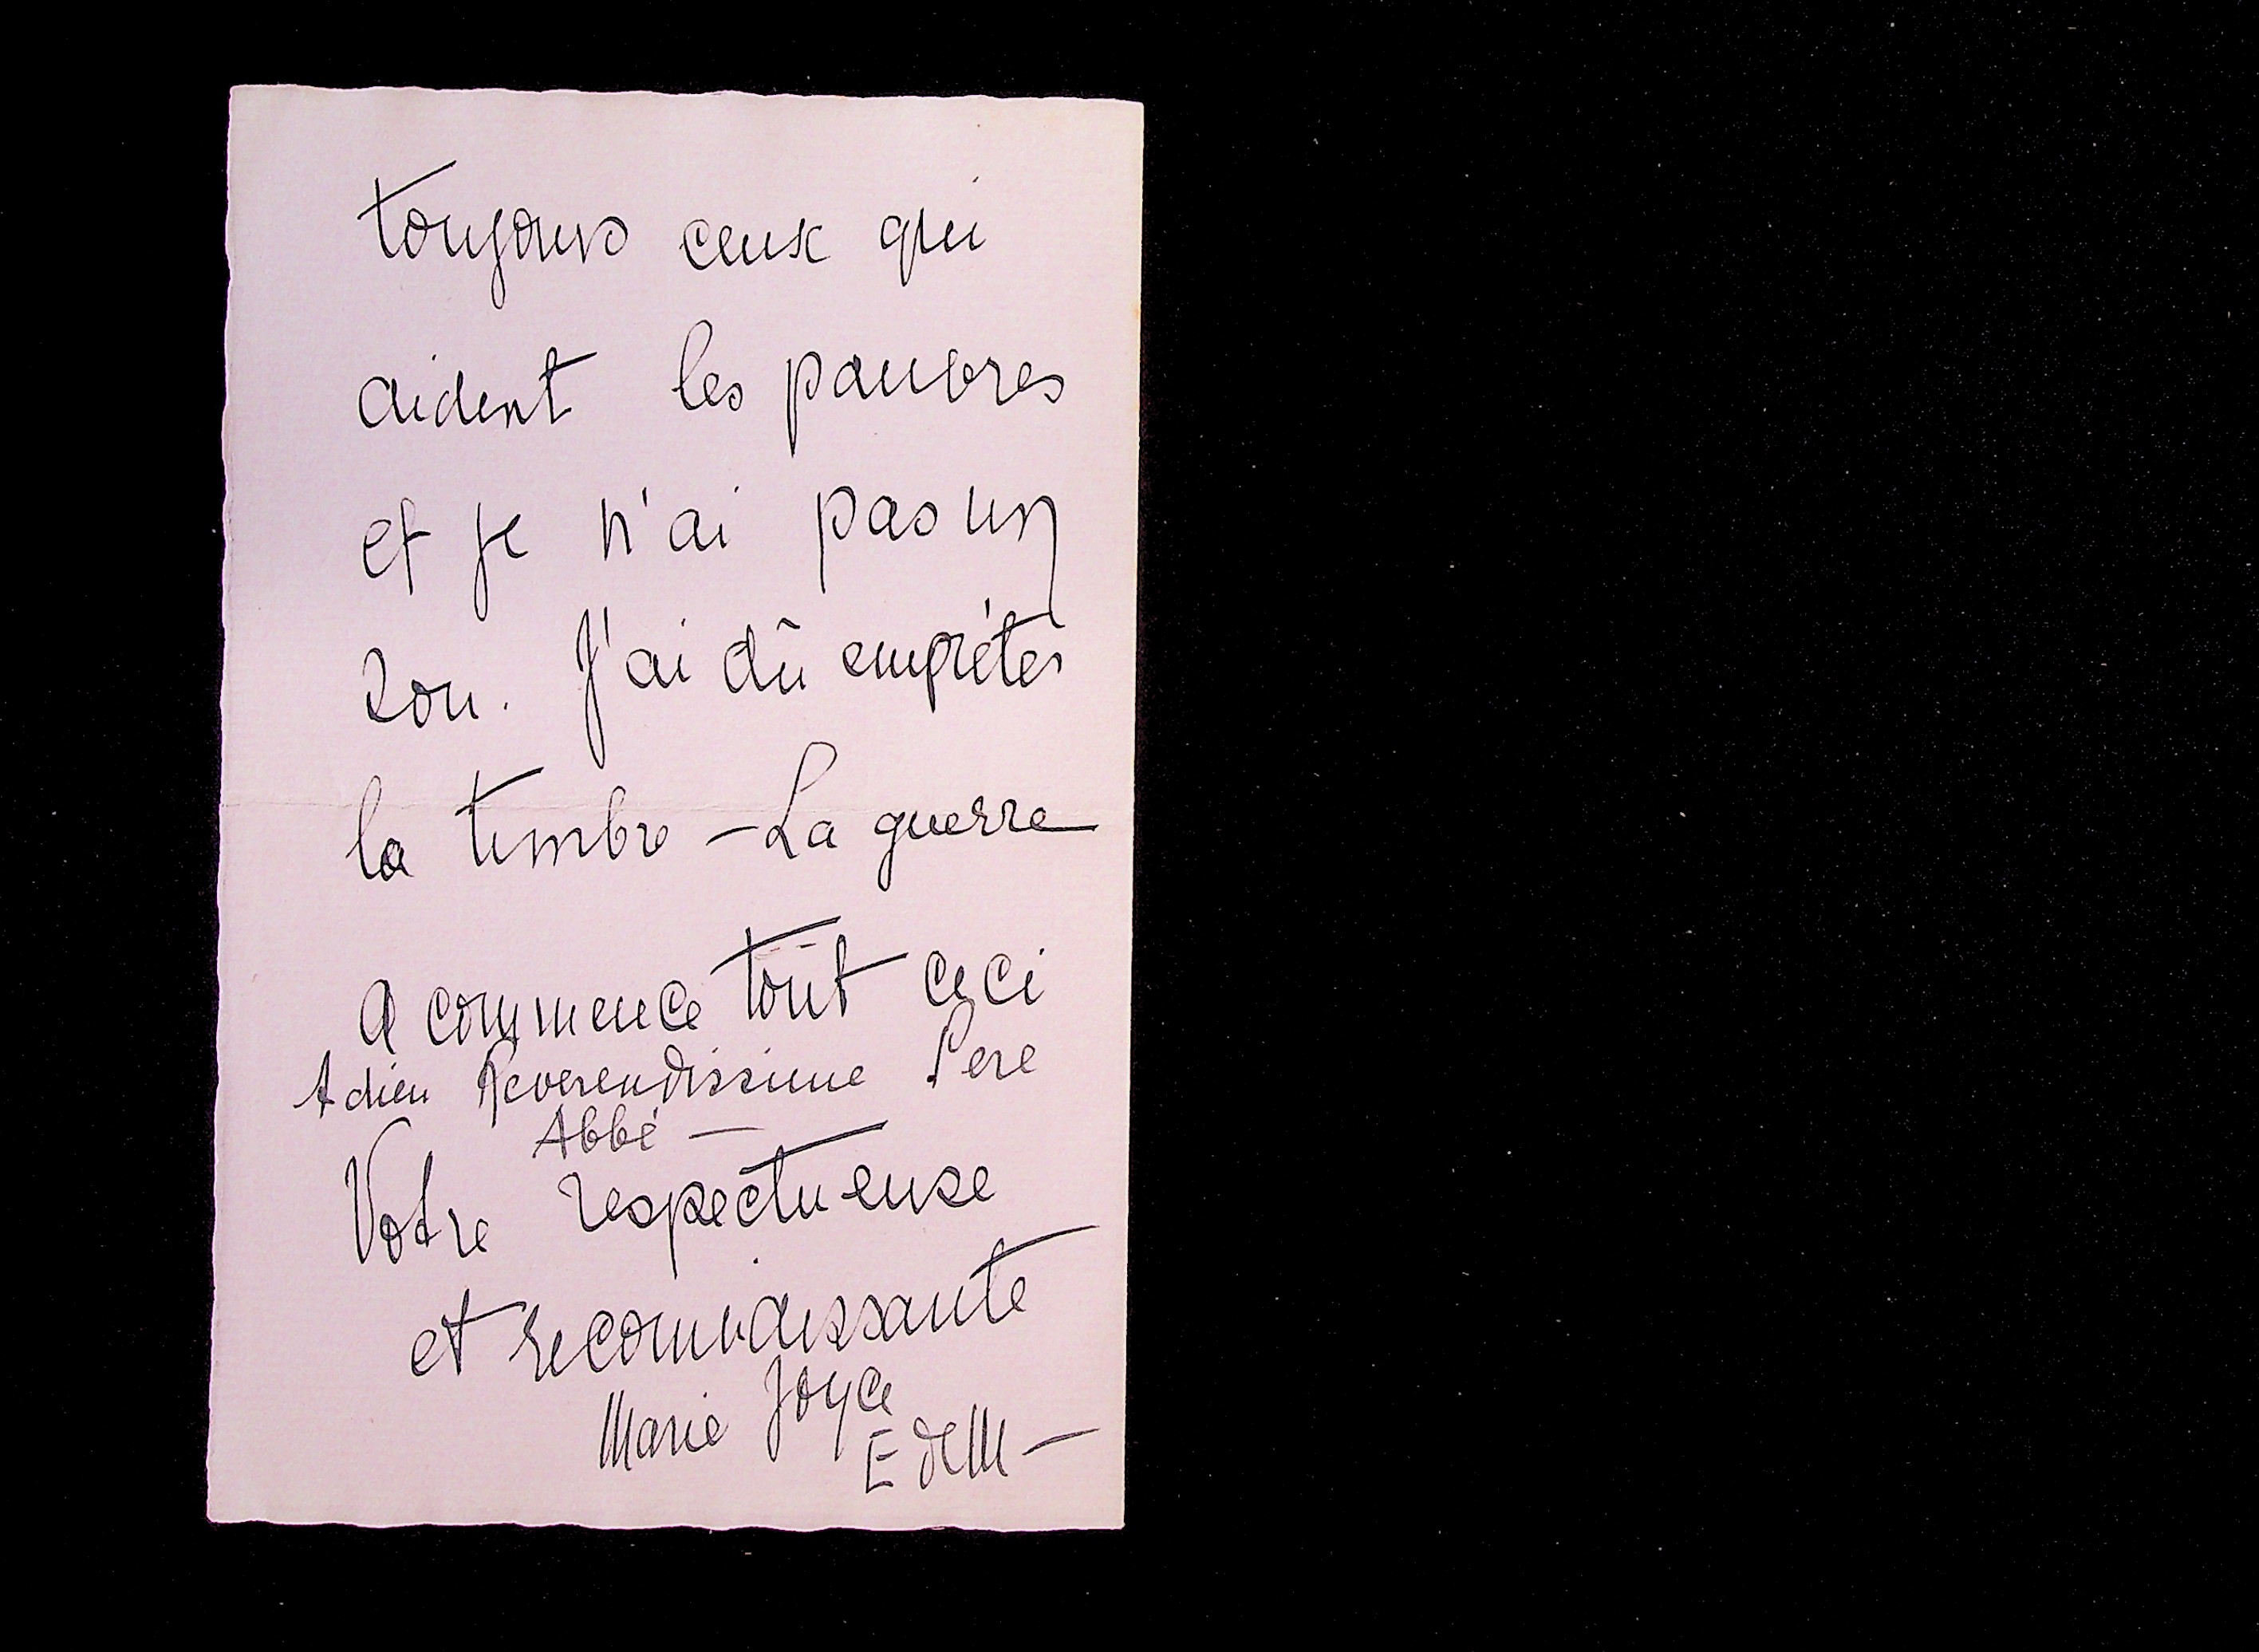 toujours ceux qui
aident les pauvres
et je n'ai pas un
sou. J'ai dû emprêter
la timbre – La guerre
a commence tout ceci
Adieu Reverendissime Pere
Abbé –
Votre respectueuse
et reconnaissante
Marie Joyce
E de M –